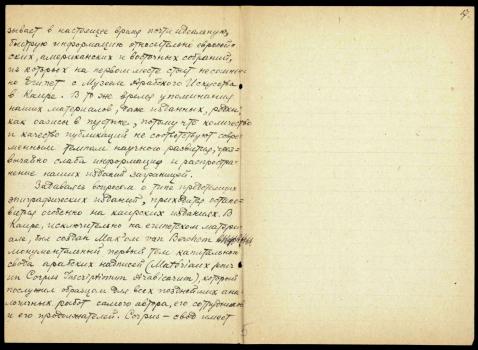 17.
зывает в настоящее время почти идеальную,
быструю информацию относительно европей-
ских, американских и восточных собраний,
из которых на первом месте стоит несомнен-
но Египет с Музеем Арабского Искусства
в Каире. В то же время упоминания
наших материалов, даже изданных, редки,
как оазисы в пустыне, потому что количество
и качество публикаций не соответствуют совре-
менным темпам научного развития, чрез-
вычайно слаба информация и распростра-
нение наших изданий заграницей.
Задаваясь вопросом о типе предстоящих
эпиграфических изданий, приходится остано-
виться особенно на каирских изданиях. В
Каире, исключительно на египетском матери-
але, был создан Мах'ом van Berchem
монументальный первый том капитального
свода арабских надписей (Matériaux pour
un Corpus Inscriptionum Arabicarum), который
послужил образцом для всех позднейших ана-
логичных работ самого автора, его сотрудников
и его продолжателей. Corpus — свод имеет